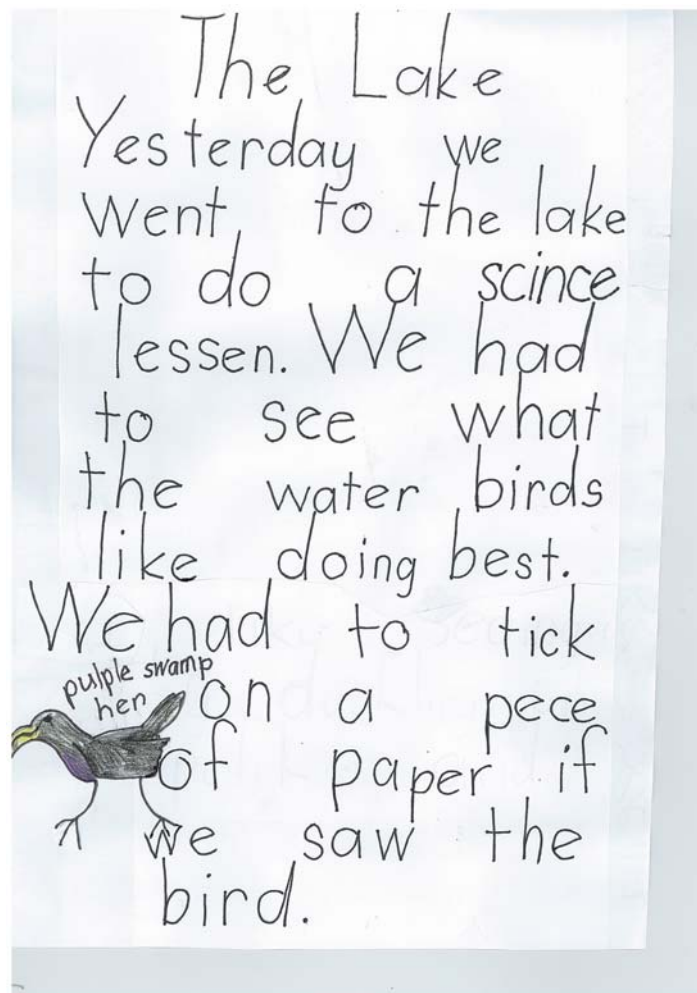 The Lake
Yesterday we
went to the lake
to do a scince
lessen. We had
to see what
the water birds
like doing best.
We had to tick
pulple swamp
hen
on a pece
of paper if
we saw the
bird.